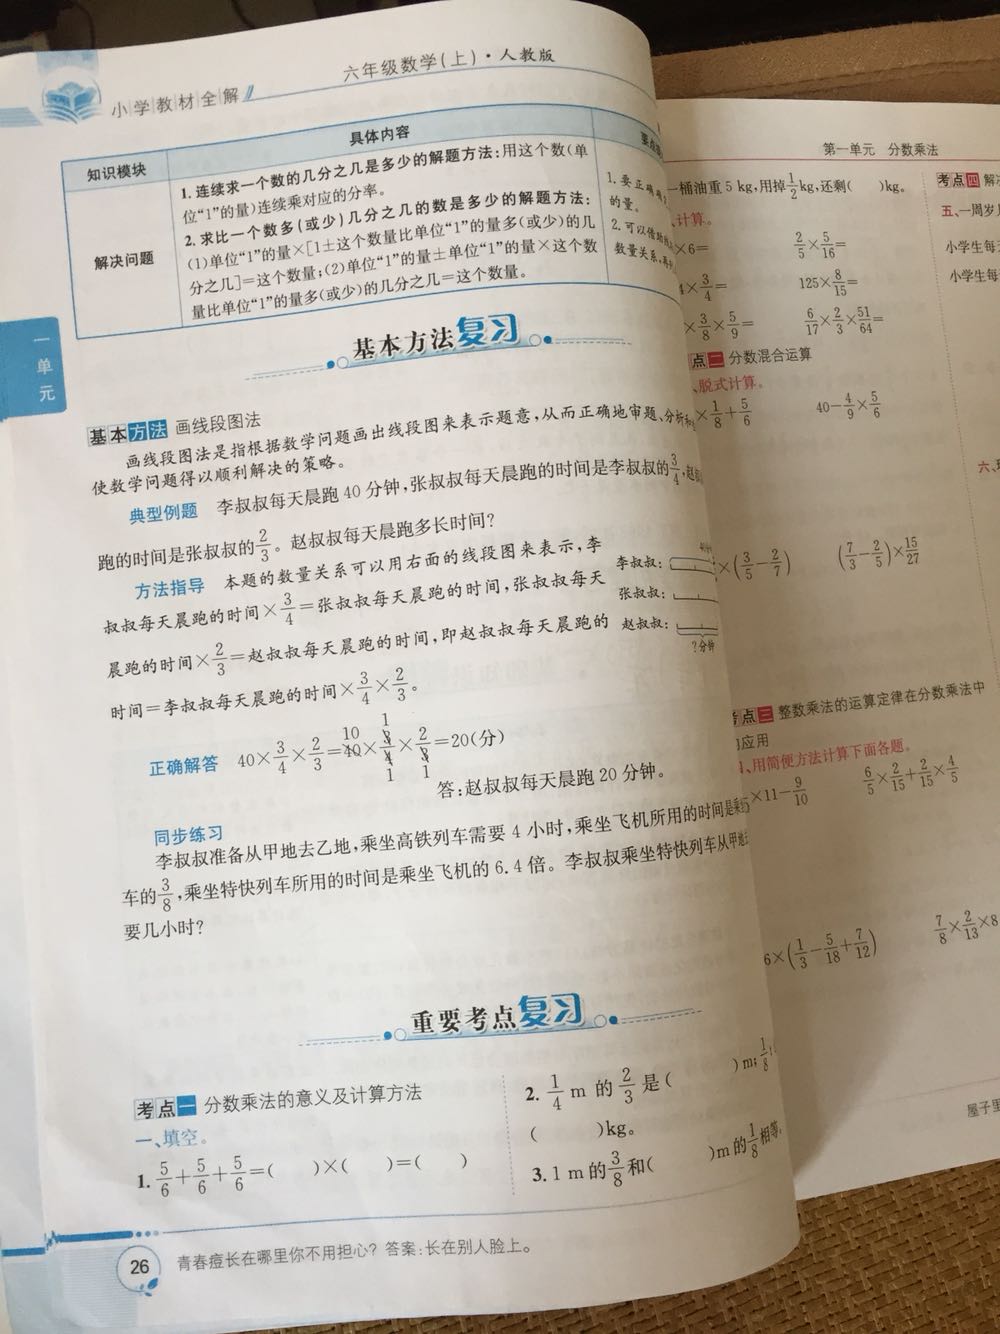 小学教材全解
六年级数学(上)·人教版
知识模块
具体内容
解决问题
1. 连续求一个数的几分之几是多少的解题方法:用这个数(单
位“1”的量)连续乘对应的分率。
2. 求比一个数多(或少)几分之几的数是多少的解题方法:
(1)单位“1”的量×[1±这个数量比单位“1”的量多(或少)的几
分之几]=这个数量;(2)单位“1”的量±单位“1”的量×这个数
量比单位“1”的量多(或少)的几分之几=这个数量。
1. 要正确
的量。
2. 可以借助
数量关系,
一单元
基本方法复习
基本方法 画线段图法
画线段图法是指根据数学问题画出线段图来表示题意,从而正确地审题、分析
使数学问题得以顺利解决的策略。
典型例题 李叔叔每天晨跑40分钟,张叔叔每天晨跑的时间是李叔叔的3/4,
跑的时间是张叔叔的2/3。赵叔叔每天晨跑多长时间?
方法指导 本题的数量关系可以用右面的线段图来表示,李
叔叔每天晨跑的时间×3/4=张叔叔每天晨跑的时间,张叔叔每天
晨跑的时间×2/3=赵叔叔每天晨跑的时间,即赵叔叔每天晨跑的
时间=李叔叔每天晨跑的时间×3/4×2/3。
李叔叔:
张叔叔:
赵叔叔:
?分钟
正确解答 40×3/4×2/3=40×3/4×2/3=20(分)
答:赵叔叔每天晨跑20分钟。
同步练习
李叔叔准备从甲地去乙地,乘坐高铁列车需要4小时,乘坐飞机所用的时间是乘
车的3/8,乘坐特快列车所用的时间是乘坐飞机的6.4倍。李叔叔乘坐特快列车从甲地
要几小时?
重要考点复习
考点一 分数乘法的意义及计算方法
一、填空。
1. 5/6+5/6+5/6=( )×( )=( )
2. 1/4 m 的 2/3 是( )m;1/8
( )kg。
3. 1 m的3/8和( )m的1/8相等
26
青春痘长在哪里你不用担心?答案:长在别人脸上。
第一单元 分数乘法
一桶油重5 kg,用掉1/2kg,还剩( )kg。
、计算。
×6=
2/5×5/16=
×3/4=
125×8/15=
×3/8×5/9=
6/17×2/3×51/64=
点二 分数混合运算
、脱式计算。
×1/8+5/6
40-4/9×5/6
×(3/5-2/7)
(7/3-2/5)×15/27
考点三 整数乘法的运算定律在分数乘法中
的应用
、用简便方法计算下面各题。
×11-9/10
6/5×2/15+2/15×4/5
6×(1/3-5/18+7/12)
7/8×2/13×8
考点四
五、一周岁
小学生每
小学生每
六、
屋子里